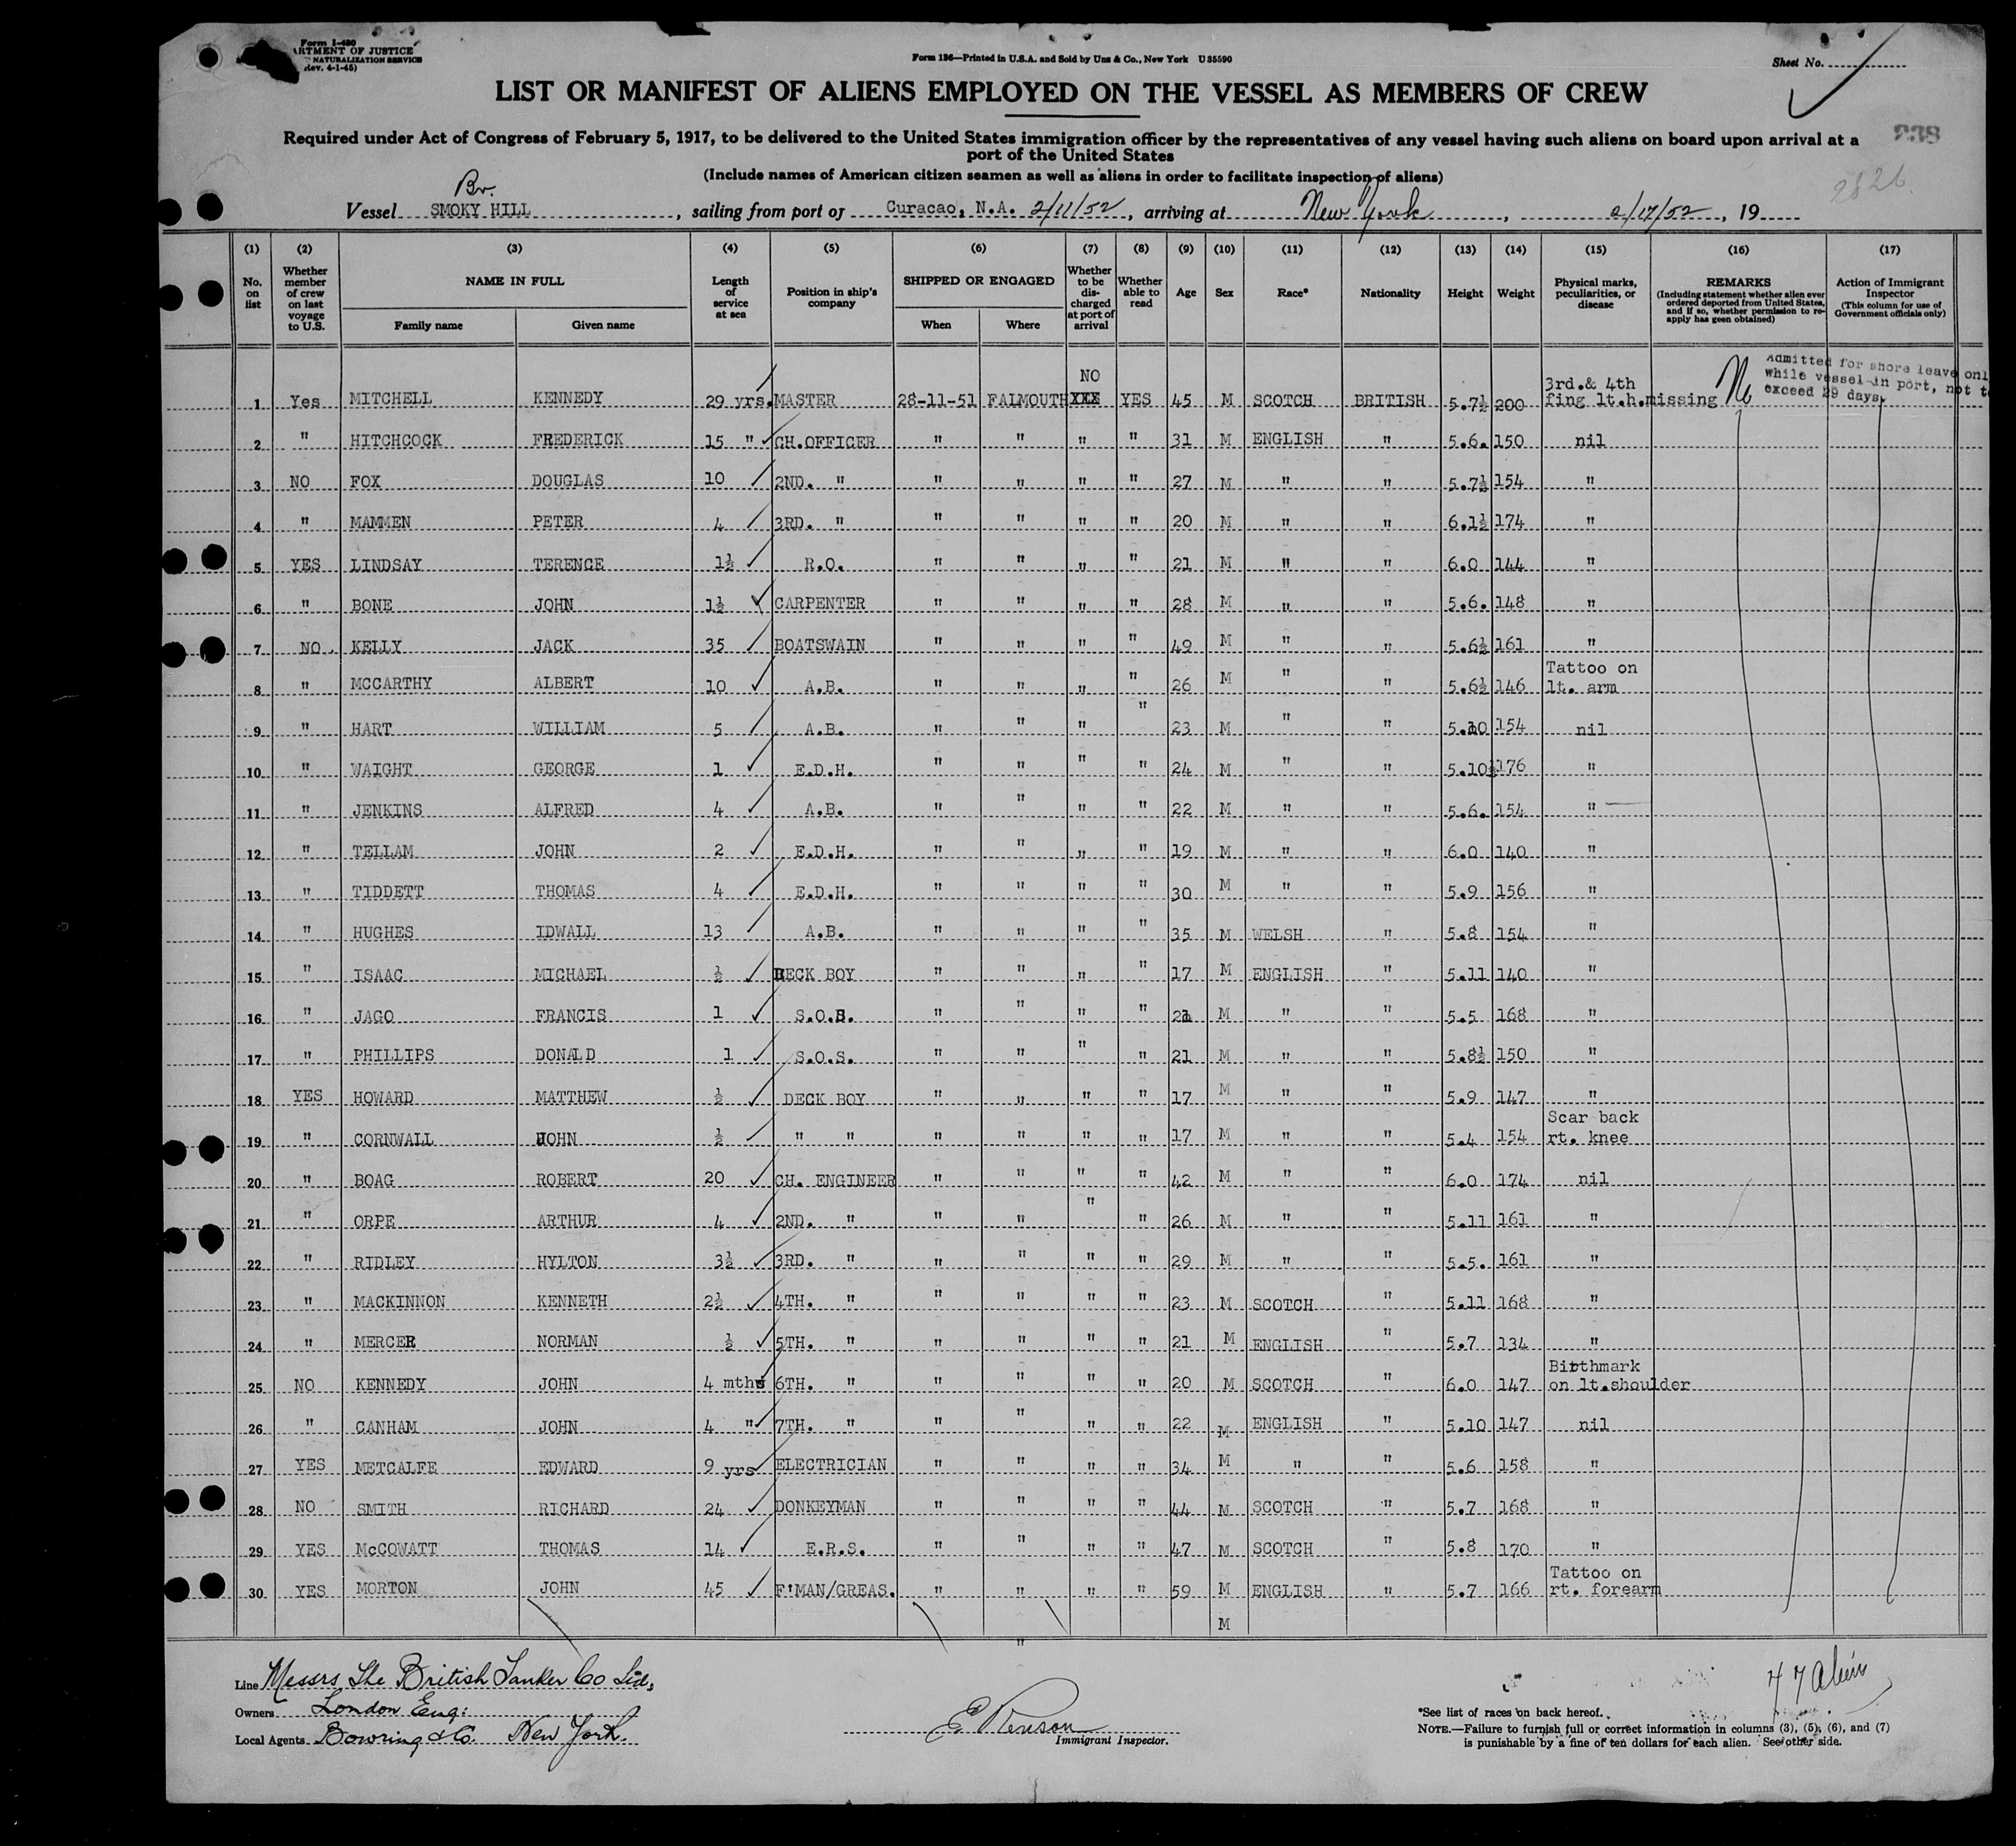 Form I-480
ARTMENT OF JUSTICE
NATURALIZATION SERVICE
Rev. 4-1-45)
Form 136—Printed in U.S.A. and Sold by Uns & Co., New York U 35590
Sheet No.
LIST OR MANIFEST OF ALIENS EMPLOYED ON THE VESSEL AS MEMBERS OF CREW
Required under Act of Congress of February 5, 1917, to be delivered to the United States immigration officer by the representatives of any vessel having such aliens on board upon arrival at a
port of the United States
238
(Include names of American citizen seamen as well as aliens in order to facilitate inspection of aliens)
2826
Br.
Vessel SMOKY HILL, sailing from port of Curacao, N.A. 2/11/52, arriving at New York, 2/17/52, 19
(1) (2) (3) (4) (5) (6) (7) (8) (9) (10) (11) (12) (13) (14) (15) (16) (17)
No. on list
Whether member of crew on last voyage to U.S.
NAME IN FULL
Family name Given name
Length of service at sea
Position in ship's company
SHIPPED OR ENGAGED
When Where
Whether to be discharged at port of arrival
Whether able to read
Age
Sex
Race*
Nationality
Height
Weight
Physical marks, peculiarities, or disease
REMARKS
(Including statement whether alien ever ordered deported from United States, and if so, whether permission to re-apply has geen obtained)
Action of Immigrant Inspector
(This column for use of Government officials only)
Admitted for shore leave onl
while vessel in port, not t
exceed 29 days.
1 Yes MITCHELL KENNEDY 29 yrs. MASTER 28-11-51 FALMOUTH NO XXX YES 45 M SCOTCH BRITISH 5.7½ 200 3rd.& 4th fing lt.h.missing No
2 " HITCHCOCK FREDERICK 15 " CH.OFFICER " " " " 31 M ENGLISH " 5.6. 150 nil
3 NO FOX DOUGLAS 10 2ND. " " " " " 27 M " " 5.7½ 154 "
4 " MAMMEN PETER 4 3RD. " " " " " 20 M " " 6.1½ 174 "
5 YES LINDSAY TERENCE 1½ R.O. " " " " 21 M " " 6.0 144 "
6 " BONE JOHN 1½ CARPENTER " " " " 28 M " " 5.6. 148 "
7 NO. KELLY JACK 35 BOATSWAIN " " " " 49 M " " 5.6½ 161 "
8 " MCCARTHY ALBERT 10 A.B. " " " " 26 M " " 5.6½ 146 Tattoo on lt. arm
9 " HART WILLIAM 5 A.B. " " " " 23 M " " 5.10 154 nil
10 " WAIGHT GEORGE 1 E.D.H. " " " " 24 M " " 5.10½ 176 "
11 " JENKINS ALFRED 4 A.B. " " " " 22 M " " 5.6. 154 "
12 " TELLAM JOHN 2 E.D.H. " " " " 19 M " " 6.0 140 "
13 " TIDDETT THOMAS 4 E.D.H. " " " " 30 M " " 5.9 156 "
14 " HUGHES IDWALL 13 A.B. " " " " 35 M WELSH " 5.8 154 "
15 " ISAAC MICHAEL ½ DECK BOY " " " " 17 M ENGLISH " 5.11 140 "
16 " JAGO FRANCIS 1 S.O.S. " " " " 21 M " " 5.5 168 "
17 " PHILLIPS DONALD 1 S.O.S. " " " " 21 M " " 5.8½ 150 "
18 YES HOWARD MATTHEW ½ DECK BOY " " " " 17 M " " 5.9 147 "
19 " CORNWALL JOHN ½ " " " " " " 17 M " " 5.4 154 Scar back rt. knee
20 " BOAG ROBERT 20 CH. ENGINEER " " " " 42 M " " 6.0 174 nil
21 " ORPE ARTHUR 4 2ND. " " " " " 26 M " " 5.11 161 "
22 " RIDLEY HYLTON 3½ 3RD. " " " " " 29 M " " 5.5. 161 "
23 " MACKINNON KENNETH 2½ 4TH. " " " " " 23 M SCOTCH " 5.11 168 "
24 " MERCER NORMAN ½ 5TH. " " " " " 21 M ENGLISH " 5.7 134 "
25 NO KENNEDY JOHN 4 mths 6TH. " " " " " 20 M SCOTCH " 6.0 147 Birthmark on lt.shoulder
26 " CANHAM JOHN 4 " 7TH. " " " " " 22 M ENGLISH " 5.10 147 nil
27 YES METCALFE EDWARD 9 yrs ELECTRICIAN " " " " 34 M " " 5.6 158 "
28 NO SMITH RICHARD 24 DONKEYMAN " " " " 44 M SCOTCH " 5.7 168 "
29 YES McCOWATT THOMAS 14 E.R.S. " " " " 47 M SCOTCH " 5.8 170 "
30 YES MORTON JOHN 45 F'MAN/GREAS. " " " " 59 M ENGLISH " 5.7 166 Tattoo on rt. forearm
M
"
Line Messrs The British Tanker Co Ltd,
Owners London Eng:
Local Agents Bowring & Co. New York.
Immigrant Inspector.
47 Aliens
*See list of races on back hereof.
NOTE.—Failure to furnish full or correct information in columns (3), (5), (6), and (7)
is punishable by a fine of ten dollars for each alien. See other side.